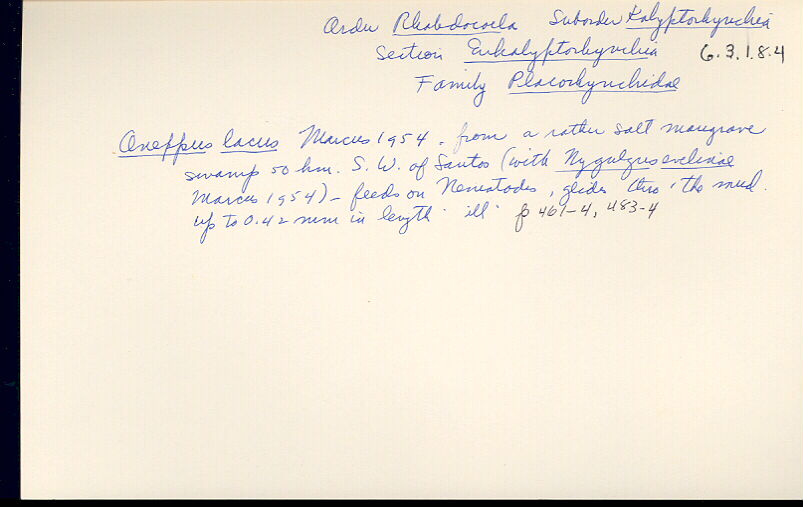 Order Rhabdocoela Suborder Kalyptorhynchia
Section Eukalyptorhynchia 6.3.1.8.4
Family Placorhynchidae
Oneppus lacus Marcus 1954. from a rather salt mangrove
swamp 50 km. S.W. of Santos (with Nygulgus evelinae
Marcus 1954) - feeds on Nematodes, glides thro' the mud.
up to 0.42 mm in length. ill. p 461-4, 483-4